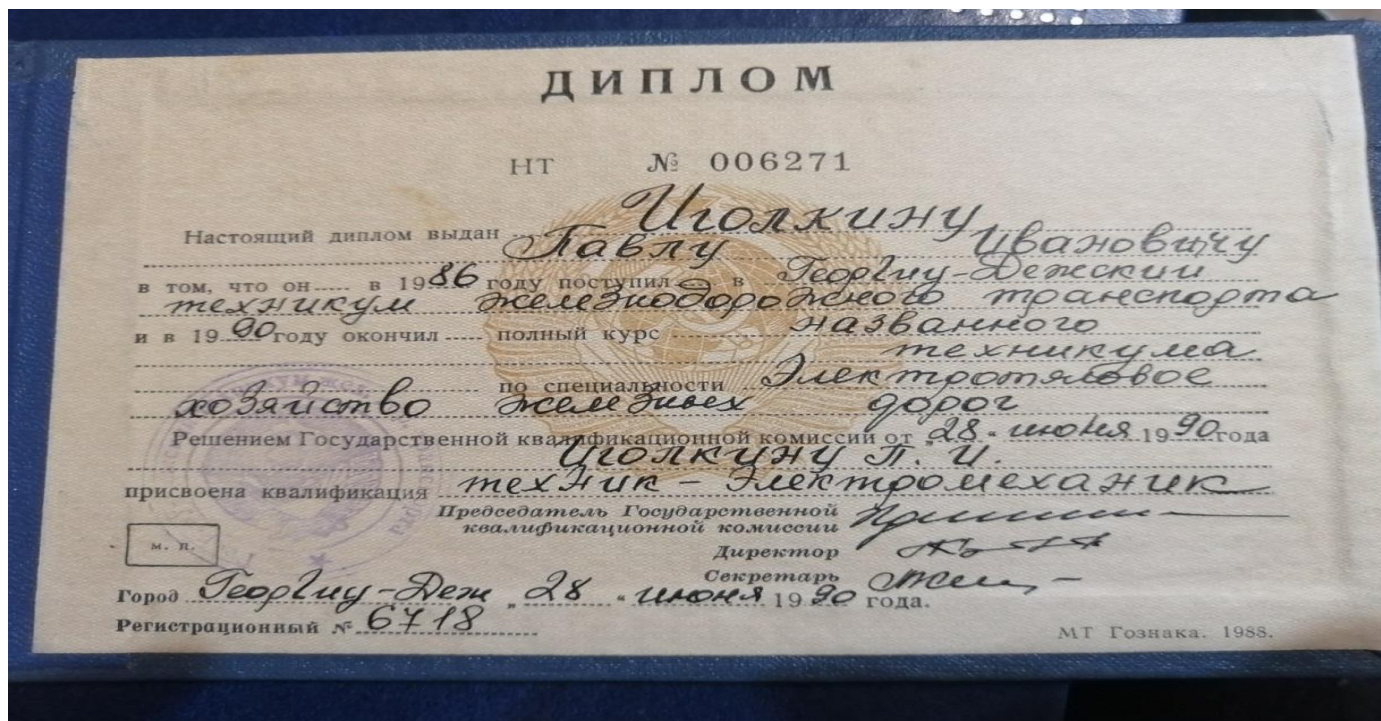 ДИПЛОМ
НТ № 006271
Настоящий диплом выдан Иголкину
Павлу Ивановичу
в том, что он в 1986 году поступил в Георгиу-Дежский
техникум железнодорожного транспорта
и в 1990 году окончил полный курс названного
техникума
по специальности Электротяговое
хозяйство железных дорог
Решением Государственной квалификационной комиссии от „28“ июня 1990 года
Иголкину П. И.
присвоена квалификация техник - электромеханик
Председатель Государственной
квалификационной комиссии
М. П.
Директор
Секретарь
Город Георгиу-Деж „28“ июня 1990 года.
Регистрационный № 6718
МТ Гознака. 1988.